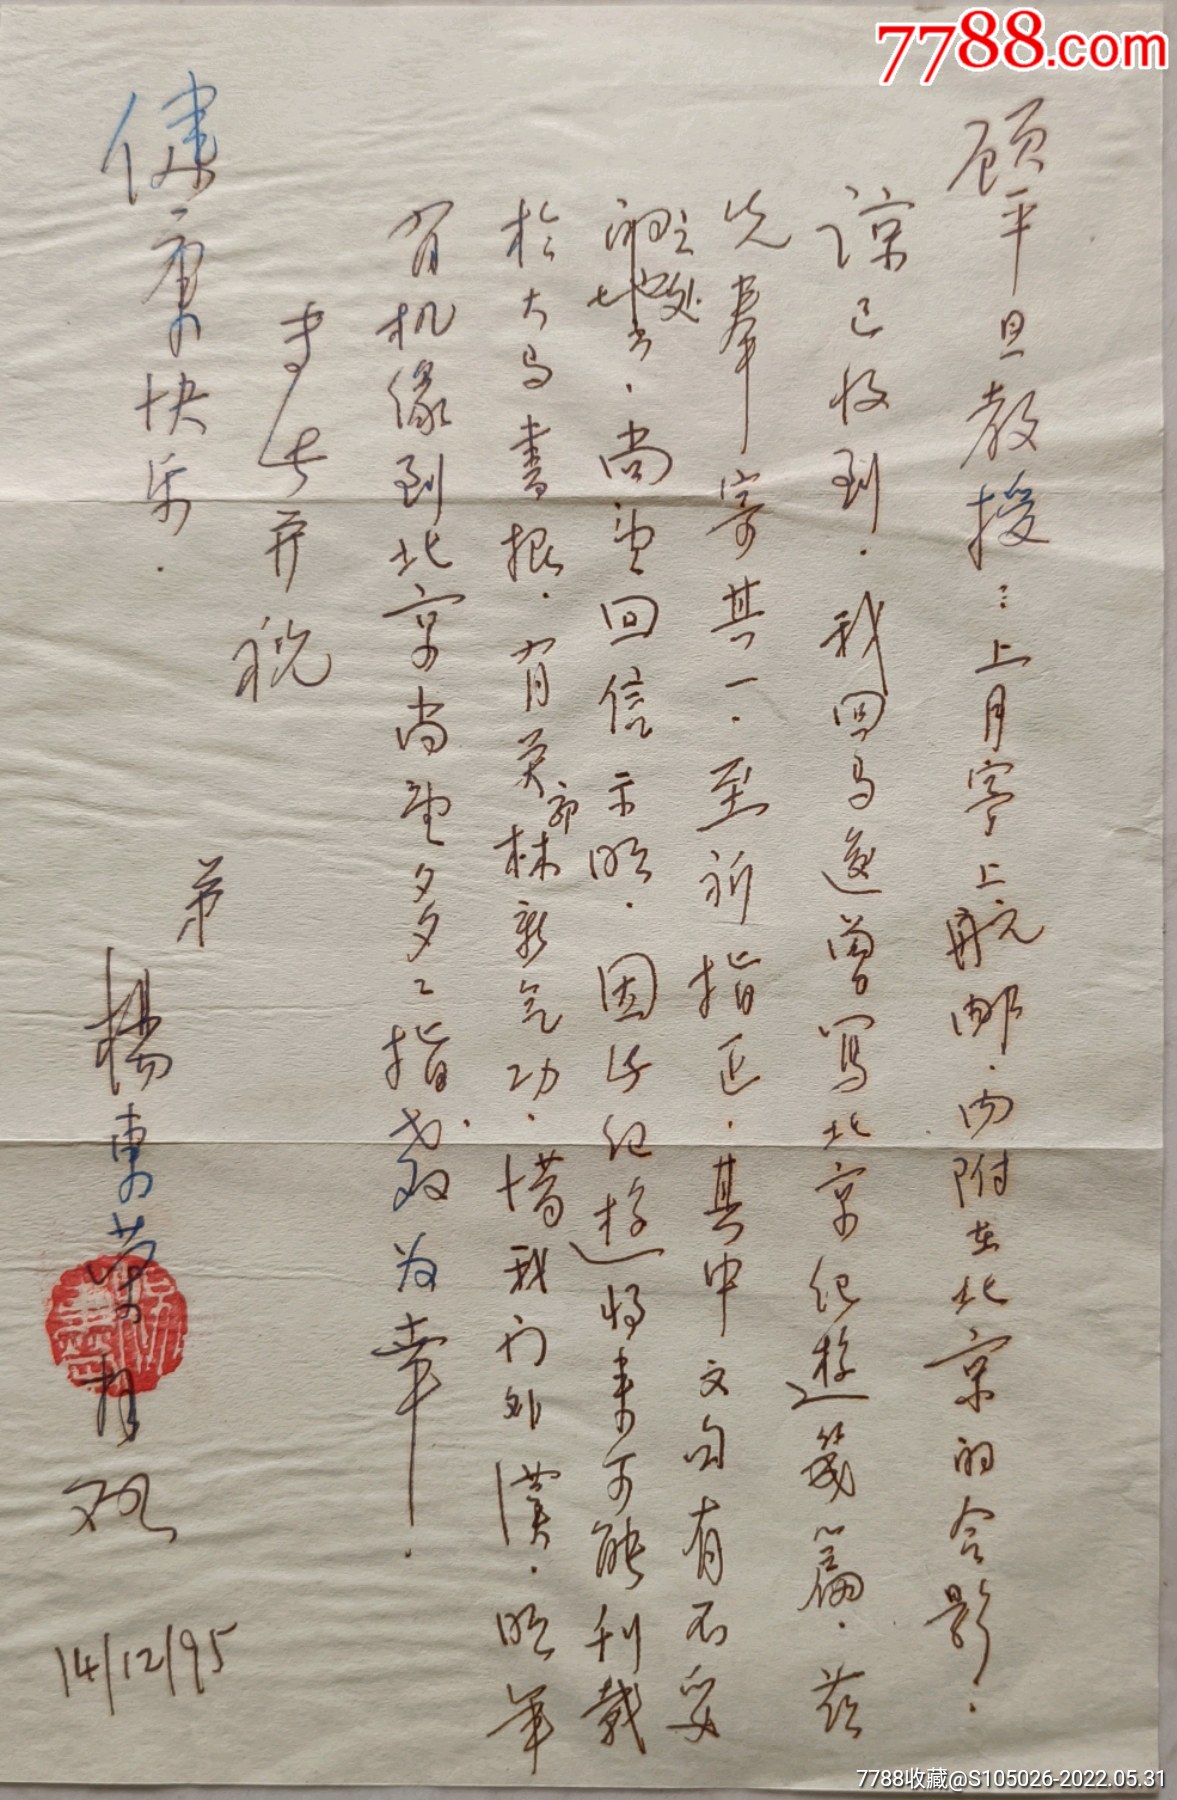 7788.com
顾平旦教授：上月寄上航邮．内附在北京的合影．
谅已收到．我回马后曾写北京纪游几篇．兹
先奉寄其一．至祈指正．其中文句有不妥
之处．尚望回信示明．因此纪游将来可能刊载
於大马書报．有关郭林新气功．惜我门外漢．明年
有机缘到北京尚望多多指教为幸．
专此并祝
健康快乐．
弟
楊東
14/12/95
7788收藏@S105026-2022.05.31